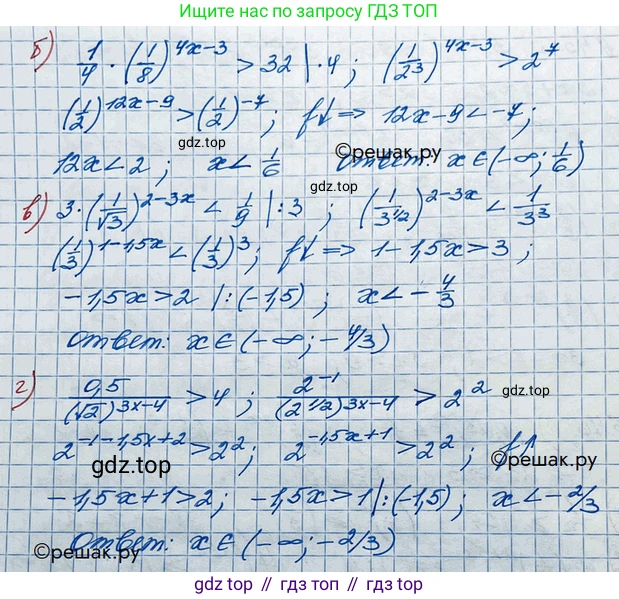 Ищите нас по запросу ГДЗ ТОП
б) 1/4 · (1/8)^(4x-3) > 32 | · 4 ; (1/2^3)^(4x-3) > 2^7
(1/2)^(12x-9) > (1/2)^(-7) ; f↓ ⇒ 12x-9 < -7 ;
©решак.ру
12x < 2 ; x < 1/6 Ответ: x ∈ (-∞; 1/6)
гдз.top
в) 3 · (1/√3)^(2-3x) < 1/9 | : 3 ; (1/3^(1/2))^(2-3x) < 1/3^3
(1/3)^(1-1,5x) < (1/3)^3 ; f↓ ⇒ 1-1,5x > 3 ;
-1,5x > 2 | : (-1,5) ; x < -4/3
Ответ: x ∈ (-∞; -4/3)
г) 0,5/(√2)^(3x-4) > 4 ; 2^(-1)/(2^(1/2))^(3x-4) > 2^2
гдз.top
2^(-1-1,5x+2) > 2^2 ; 2^(-1,5x+1) > 2^2 ; f↑
гдз.top ©решак.ру
-1,5x+1 > 2 ; -1,5x > 1 | : (-1,5) ; x < -2/3
©решак.ру
Ответ: x ∈ (-∞; -2/3)
gdz.top // гдз.топ // гдз.top